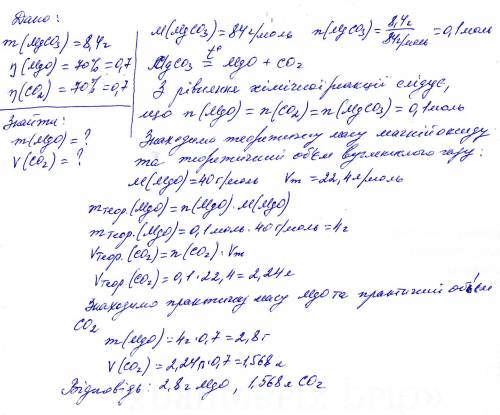 Дано:
m(MgCO₃)=8,4г
η(MgO)=70%=0,7
η(CO₂)=70%=0,7
Знайти:
m(MgO)=?
V(CO₂)=?
M(MgCO₃)=84г/моль n(MgCO₃)=8,4г/84г/моль=0,1моль
MgCO₃ t°= MgO + CO₂
З рівняння хімічної реакції слідує,
що n(MgO)=n(CO₂)=n(MgCO₃)=0,1моль
Знаходимо теоретичну масу магній оксиду
та теоретичний об'єм вуглекислого газу:
M(MgO)=40г/моль Vm=22,4л/моль
mтеор.(MgO)=n(MgO)·M(MgO)
mтеор.(MgO)=0,1моль·40г/моль=4г
Vтеор.(CO₂)=n(CO₂)·Vm
Vтеор.(CO₂)=0,1·22,4=2,24л
Знаходимо практичну масу MgO та практичний об'єм
CO₂
m(MgO)=4г·0,7=2,8г
V(CO₂)=2,24л·0,7=1,568л
Відповідь: 2,8г MgO, 1,568л CO₂